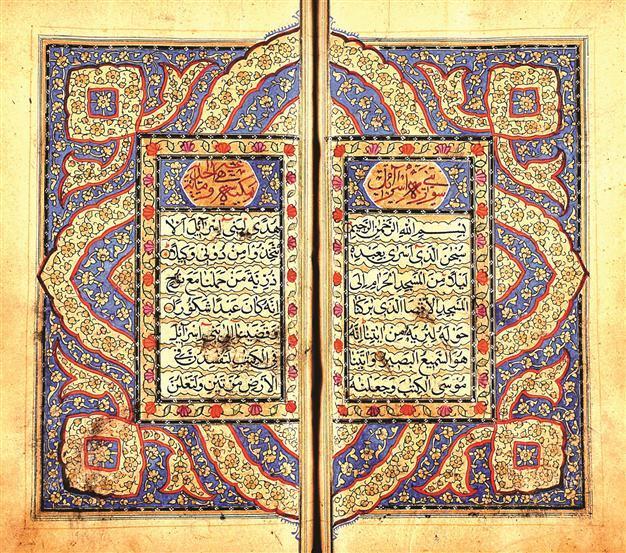 سورة بني اسرائيل
بِسْمِ اللهِ الرَّحْمٰنِ الرَّحِيْمِ
سُبْحٰنَ الَّذِى اَسْرٰى بِعَبْدِهٖ
لَيْلًا مِنَ الْمَسْجِدِ الْحَرَامِ اِلَى
الْمَسْجِدِ الْاَقْصَا الَّذِى بٰرَكْنَا
حَوْلَهٗ لِنُرِيَهٗ مِنْ اٰيٰتِنَا اِنَّهٗ
هُوَ السَّمِيْعُ الْبَصِيْرُ وَاٰتَيْنَا
مُوْسَى الْكِتٰبَ وَجَعَلْنٰهُ
هُدًى لِبَنِىْ اِسْرَائِيْلَ اَلَّا
تَتَّخِذُوْا مِنْ دُوْنِىْ وَكِيْلًا
ذُرِّيَّةَ مَنْ حَمَلْنَا مَعَ نُوْحٍ
اِنَّهٗ كَانَ عَبْدًا شَكُوْرًا
وَقَضَيْنَا اِلٰى بَنِىْ اِسْرَائِيْلَ
فِى الْكِتٰبِ لَتُفْسِدُنَّ فِى
الْاَرْضِ مَرَّتَيْنِ وَلَتَعْلُنَّ